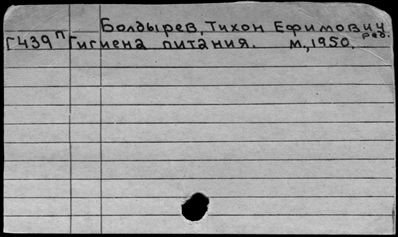 Болдырев, Тихон Ефимович
ред.
Г439п Гигиена питания. М., 1950.